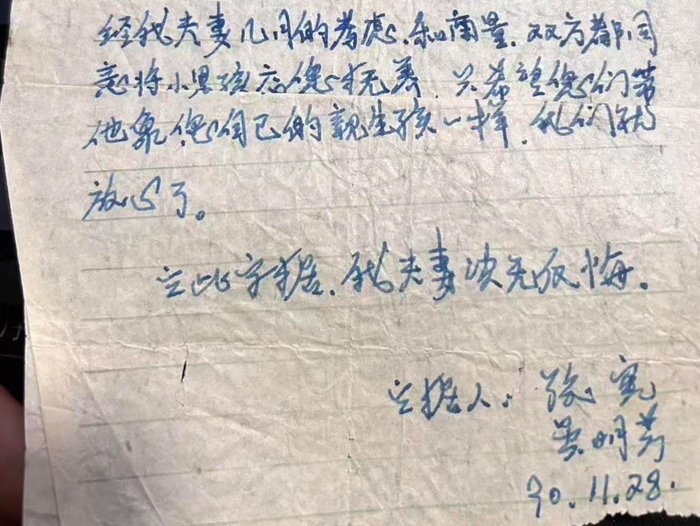 经我夫妻几月的考虑、和商量，双方都同
意将小男孩应您抚养，只希望您们带
他象您自己的親生孩一样，我们就
放心了。
立此字据，我夫妻决无反悔。
立据人：张
明
90.11.28.